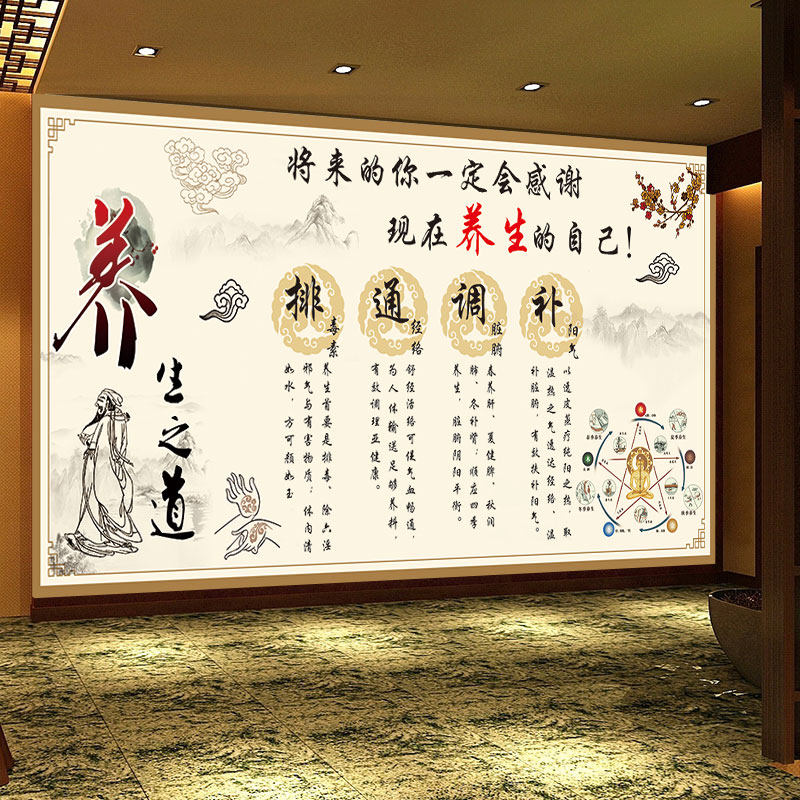 养
生之道
将来的你一定会感谢
现在养生的自己!
排
毒素
养生首要是排毒、除六淫
邪气与有害物质;体内清
如水,方可颜如玉
通
经络
舒经活络可使气血畅通,
为人体输送足够养料,
有效调理亚健康。
调
脏腑
春养肝、夏健脾、秋润
肺、冬补肾;顺应四季
养生,脏腑阴阳平衡。
补
阳气
以透皮蒸疗纯阳之热,取
温热之气通达经络、温
补脏腑,有效扶补阳气。
春季养生
夏季养生
冬季养生
秋季养生